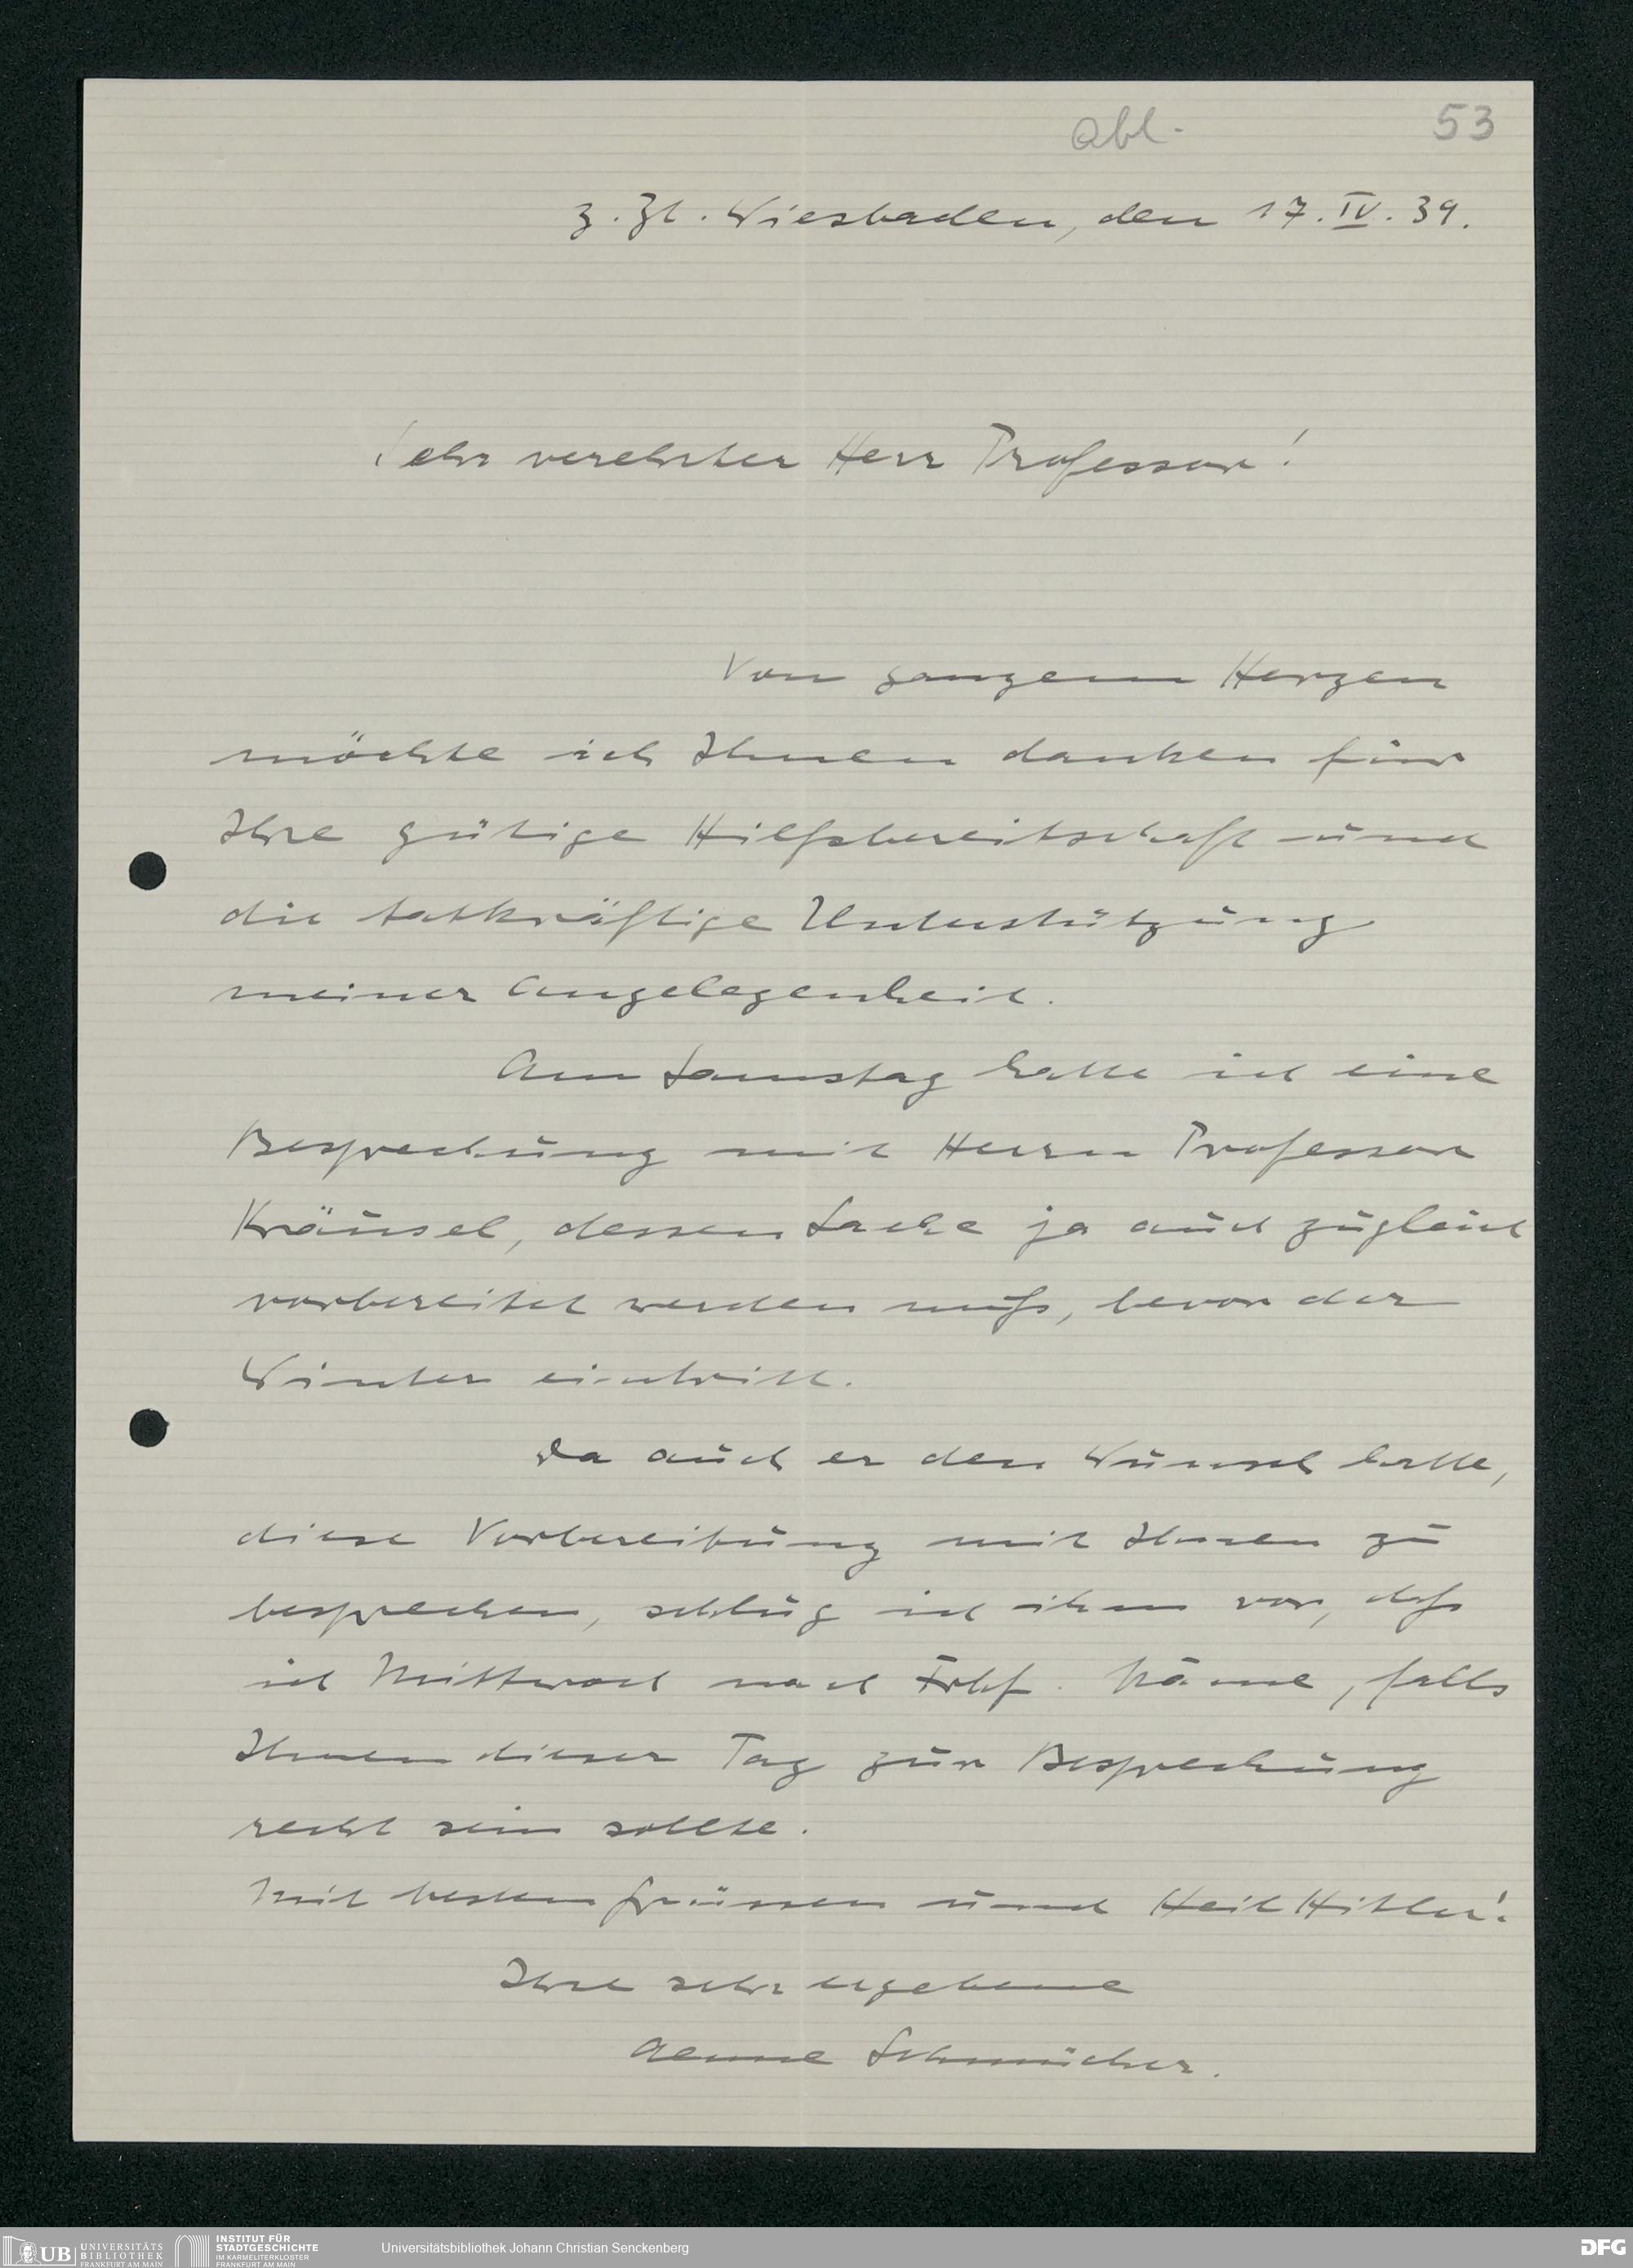 abl.
53
z. Zt. Wiesbaden, den 17. IV. 39.
Sehr verehrter Herr Professor!
Von ganzem Herzen
möchte ich Ihnen danken für
Ihre gütige Hilfsbereitschaft und
die tatkräftige Unterstützung
meiner Angelegenheit.
Am Samstag hatte ich eine
Besprechung mit Herrn Professor
Kräusel, dessen Sache ja auch zugleich
vorbereitet werden muß, bevor der
Winter eintritt.
Da auch er den Wunsch hatte,
diese Vorbereitung mit Ihnen zu
besprechen, schlug ich ihm vor, daß
ich Mittwoch nach Frkf. käme, falls
Ihnen dieser Tag zur Besprechung
recht sein sollte.
Mit besten Grüssen und Heil Hitler!
Ihre sehr ergebene
Aenne Schmücker.
UB UNIVERSITÄTS
BIBLIOTHEK
FRANKFURT AM MAIN
INSTITUT FÜR
STADTGESCHICHTE
IM KARMELITERKLOSTER
FRANKFURT AM MAIN
Universitätsbibliothek Johann Christian Senckenberg
DFG